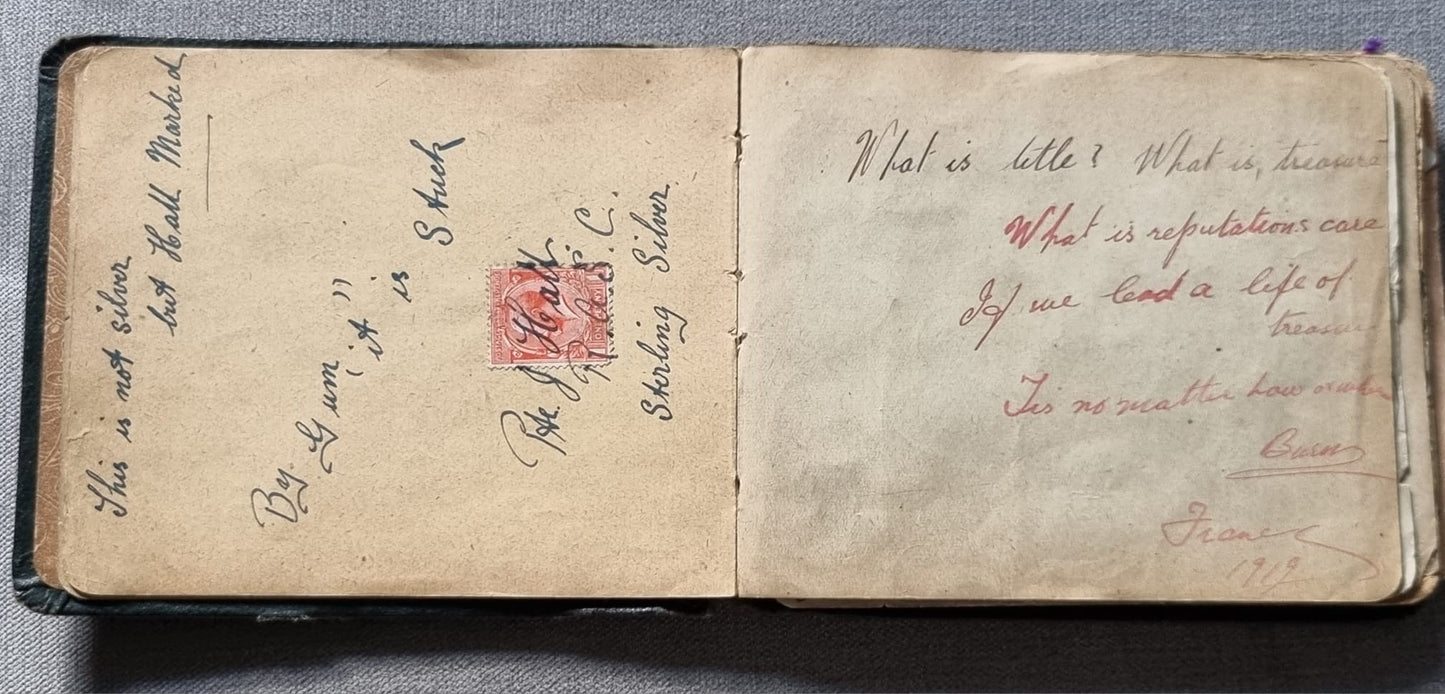 This is not silver
but Hall Marked
By. Gum
"it"
is
Stuck
Pte. J Hall
Sterling Silver
What is title? What is, treasure
What is reputations care
If we lead a life of
treasure
Tis no matter how or where
Burns
France
1919